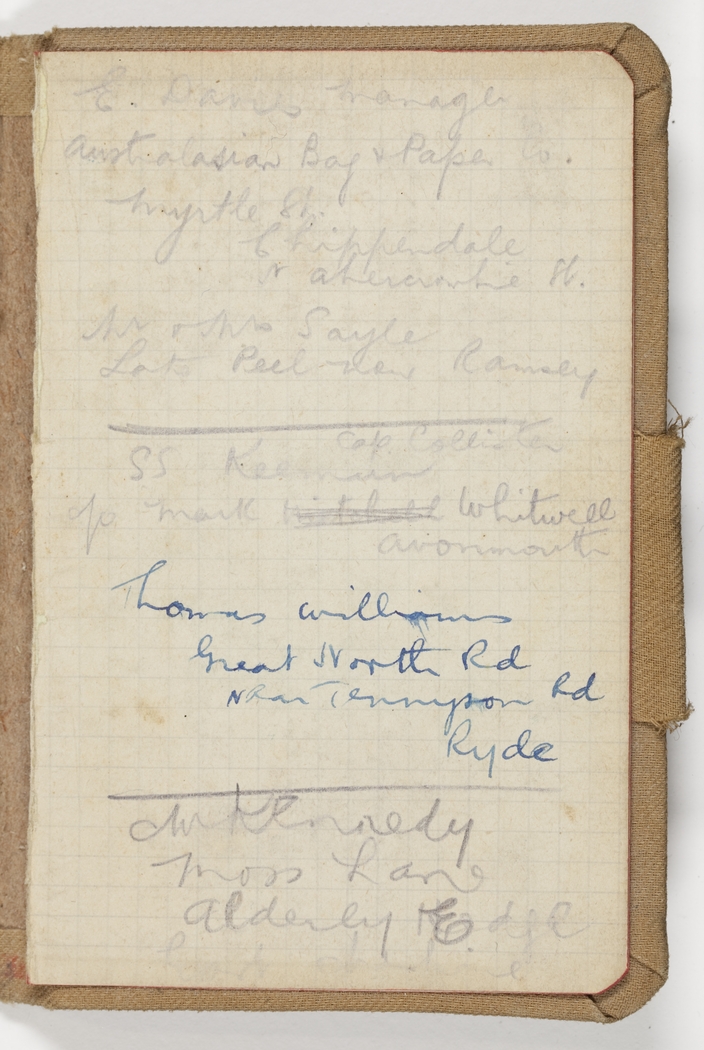 E Davies Manager
Australasian Bag & Paper Co.
Myrtle St.
Chippendale
N abercrombie St.
Mr & Mrs Sayle
Late Peel near Ramsey
Cap Collister
SS
c/o Mark Mitchell Whitwell
avonmouth
Thomas williams
Great North Rd
Near Tennyson Rd
Ryde
Mr Kennedy
Moss Lane
Alderley Edge